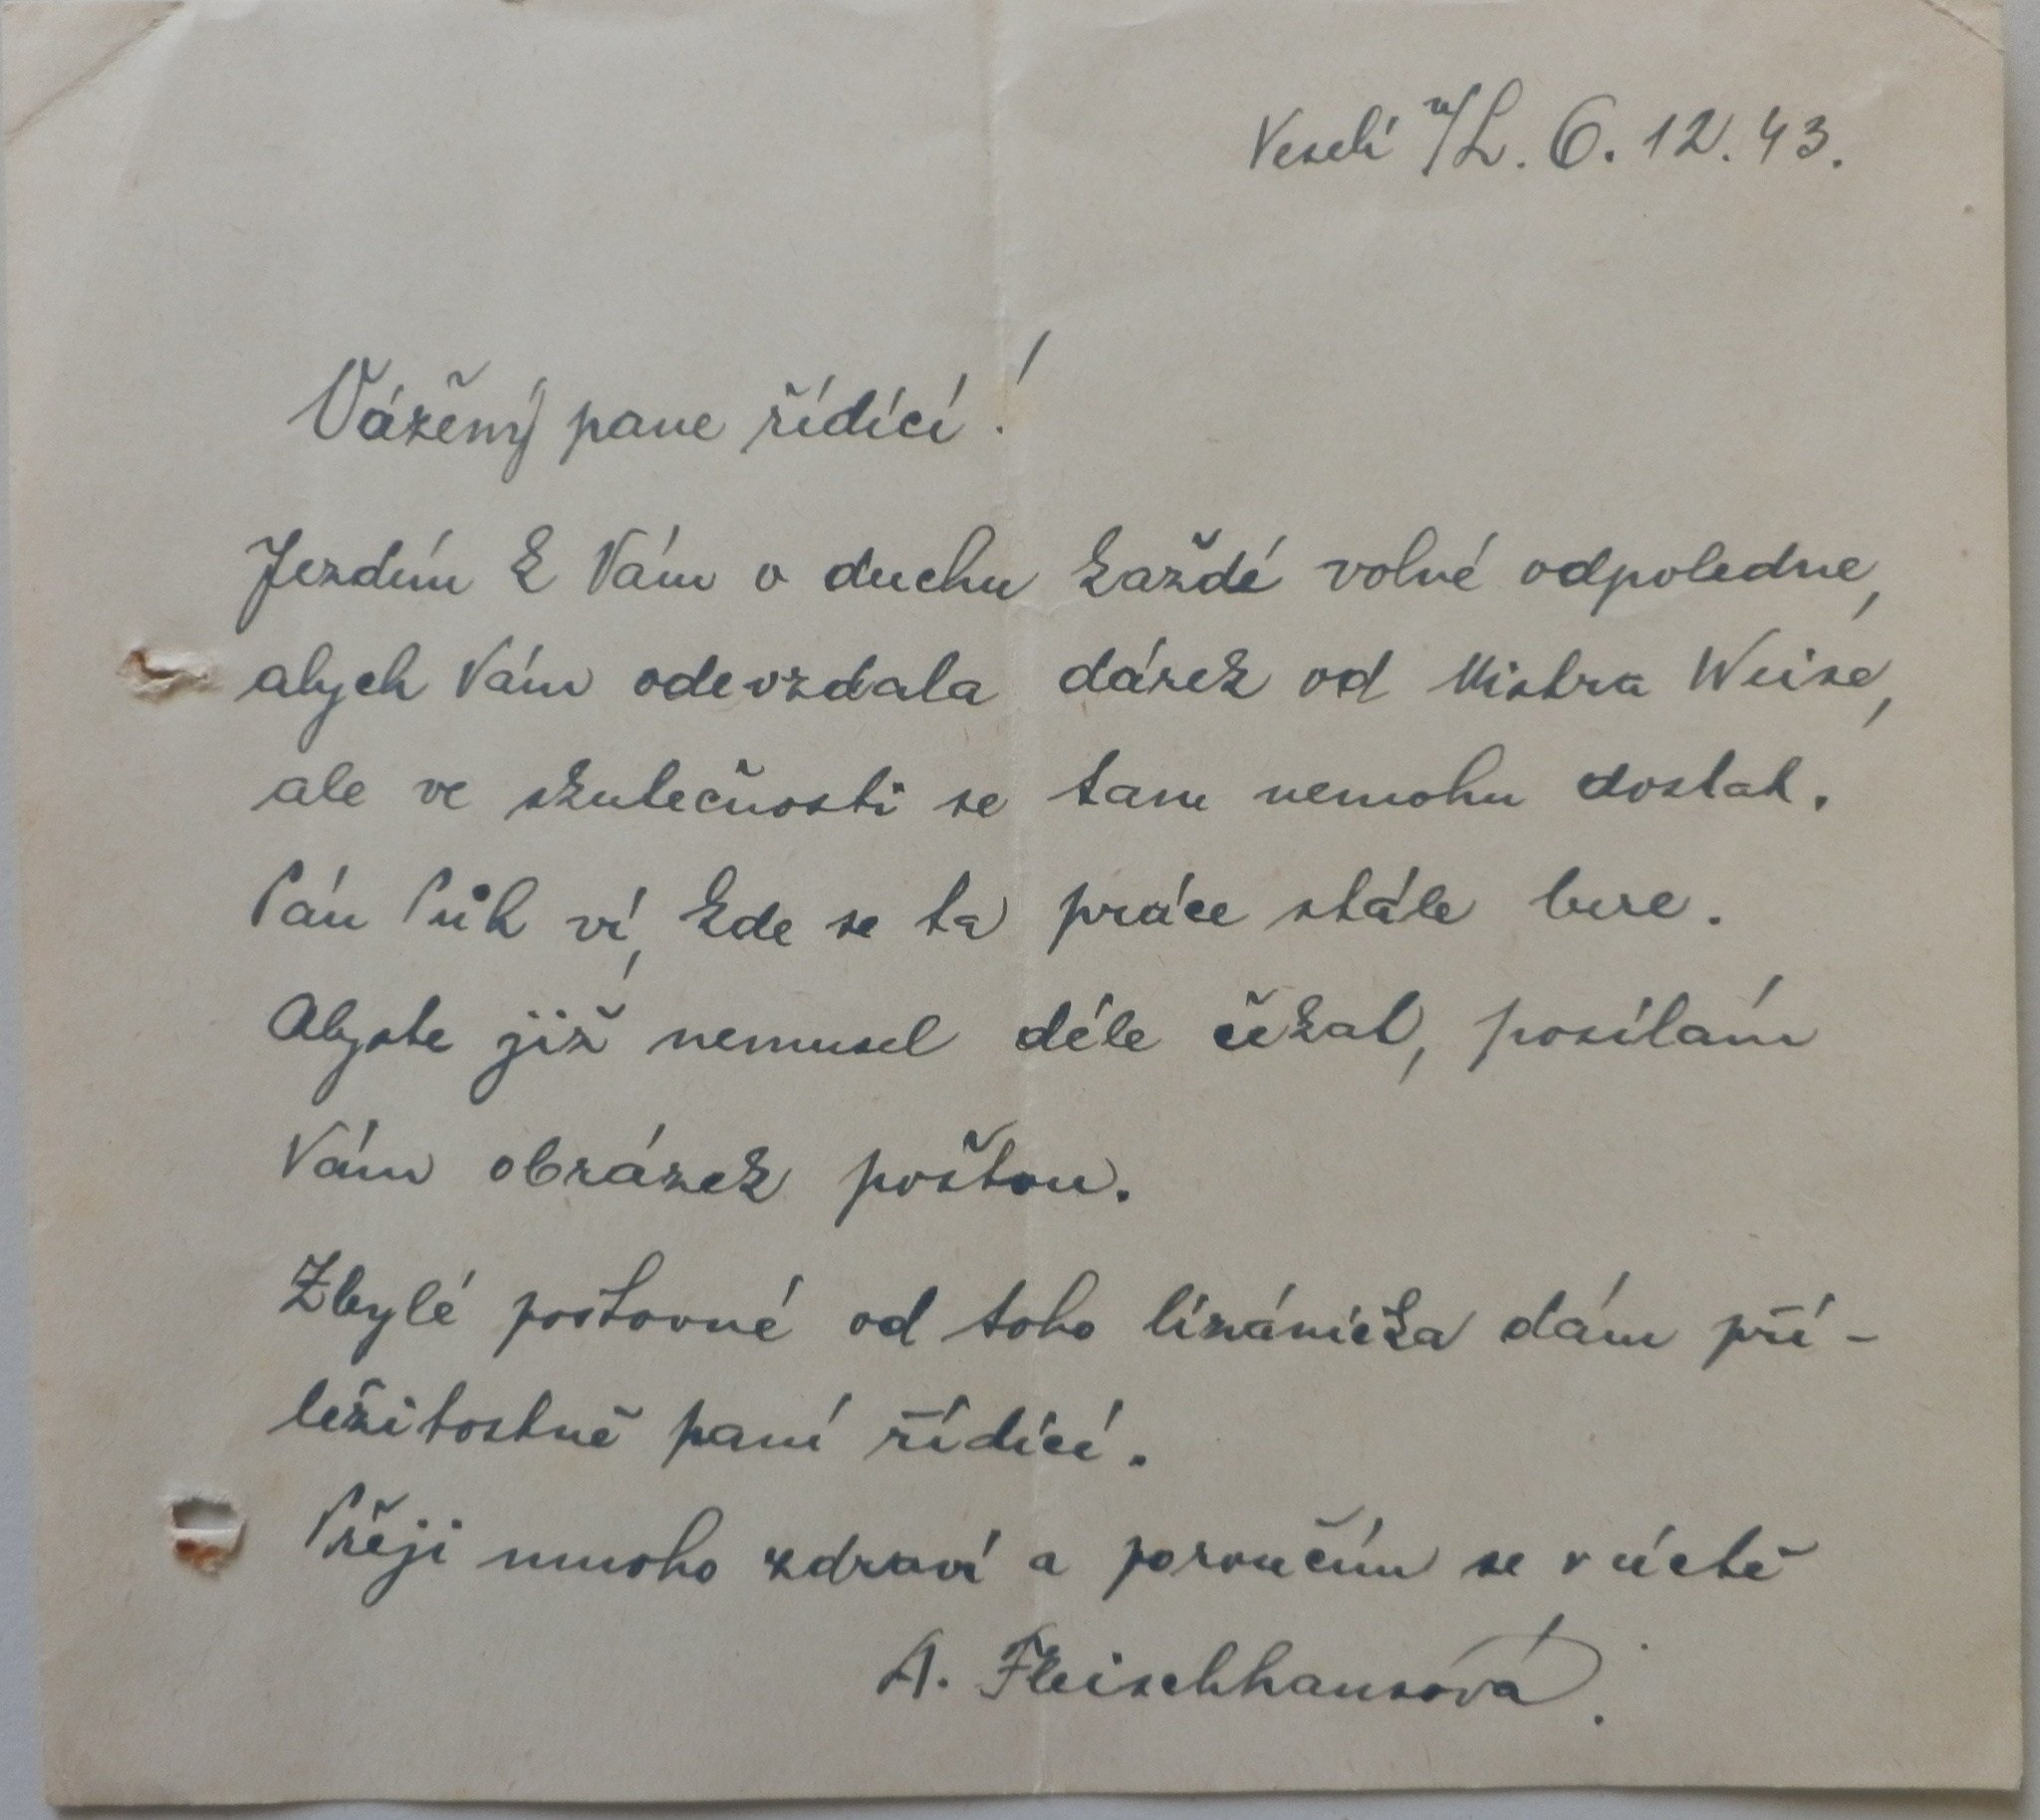 Veselí n/L. 6. 12. 43.
Vážený pane řídící!
Jezdím k Vám v duchu každé volné odpoledne,
abych Vám odevzdala dárek od Mistra Weise,
ale ve skutečnosti se tam nemohu dostat.
Pán Bůh ví, kde se ta práce stále bere.
Abyste již nemusel déle čekat, posílám
Vám obrázek poštou.
Zbylé poštovné od toho lízánička dám pří-
ležitostně paní řídící.
Přeji mnoho zdraví a poroučím se v úctě
A. Fleischhansová.